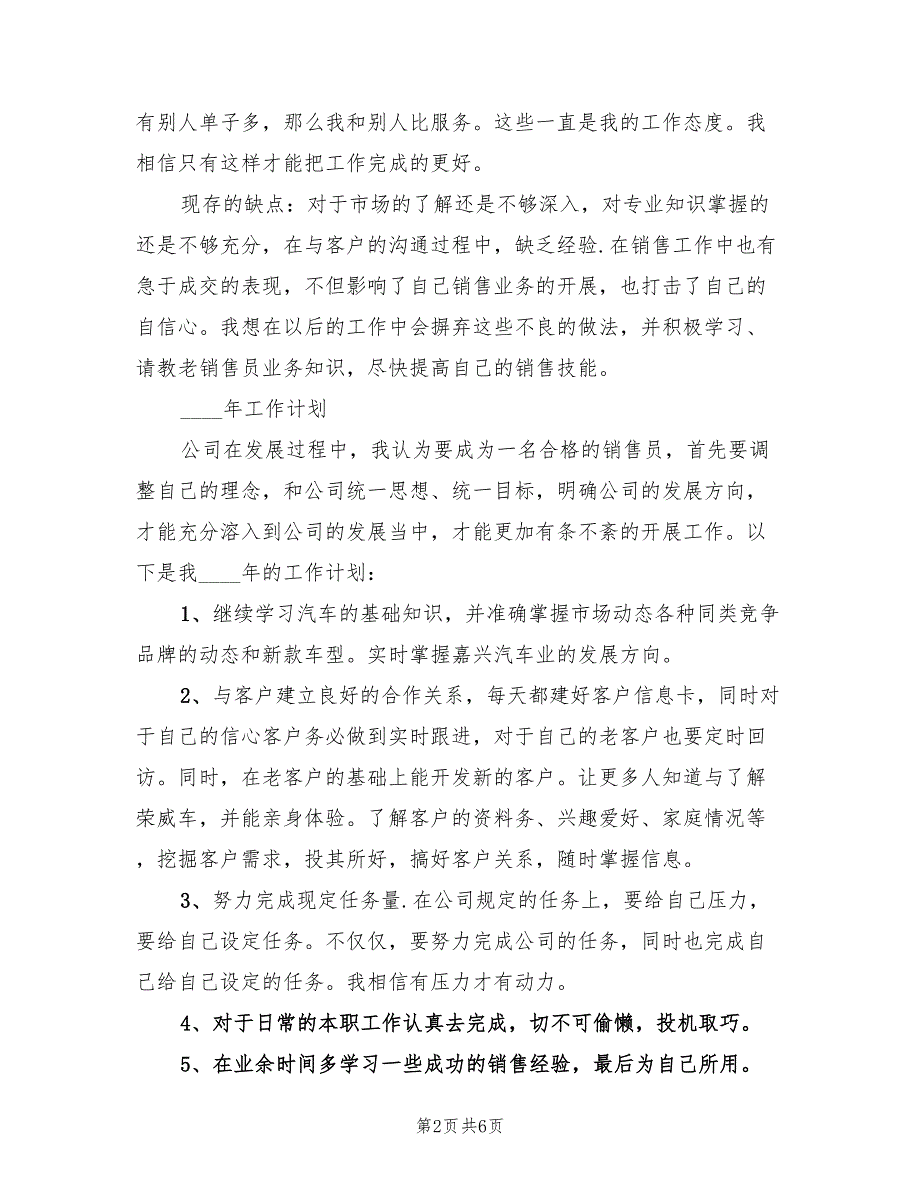 有别人单子多，那么我和别人比服务。这些一直是我的工作态度。我
相信只有这样才能把工作完成的更好。
现存的缺点：对于市场的了解还是不够深入，对专业知识掌握的
还是不够充分，在与客户的沟通过程中，缺乏经验.在销售工作中也有
急于成交的表现，不但影响了自己销售业务的开展，也打击了自己的
自信心。我想在以后的工作中会摒弃这些不良的做法，并积极学习、
请教老销售员业务知识，尽快提高自己的销售技能。
____年工作计划
公司在发展过程中，我认为要成为一名合格的销售员，首先要调
整自己的理念，和公司统一思想、统一目标，明确公司的发展方向，
才能充分溶入到公司的发展当中，才能更加有条不紊的开展工作。以
下是我____年的工作计划：
1、继续学习汽车的基础知识，并准确掌握市场动态各种同类竞争
品牌的动态和新款车型。实时掌握嘉兴汽车业的发展方向。
2、与客户建立良好的合作关系，每天都建好客户信息卡，同时对
于自己的信心客户务必做到实时跟进，对于自己的老客户也要定时回
访。同时，在老客户的基础上能开发新的客户。让更多人知道与了解
荣威车，并能亲身体验。了解客户的资料务、兴趣爱好、家庭情况等
，挖掘客户需求，投其所好，搞好客户关系，随时掌握信息。
3、努力完成现定任务量.在公司规定的任务上，要给自己压力，
要给自己设定任务。不仅仅，要努力完成公司的任务，同时也完成自
己给自己设定的任务。我相信有压力才有动力。
4、对于日常的本职工作认真去完成，切不可偷懒，投机取巧。
5、在业余时间多学习一些成功的销售经验，最后为自己所用。
第2页共6页